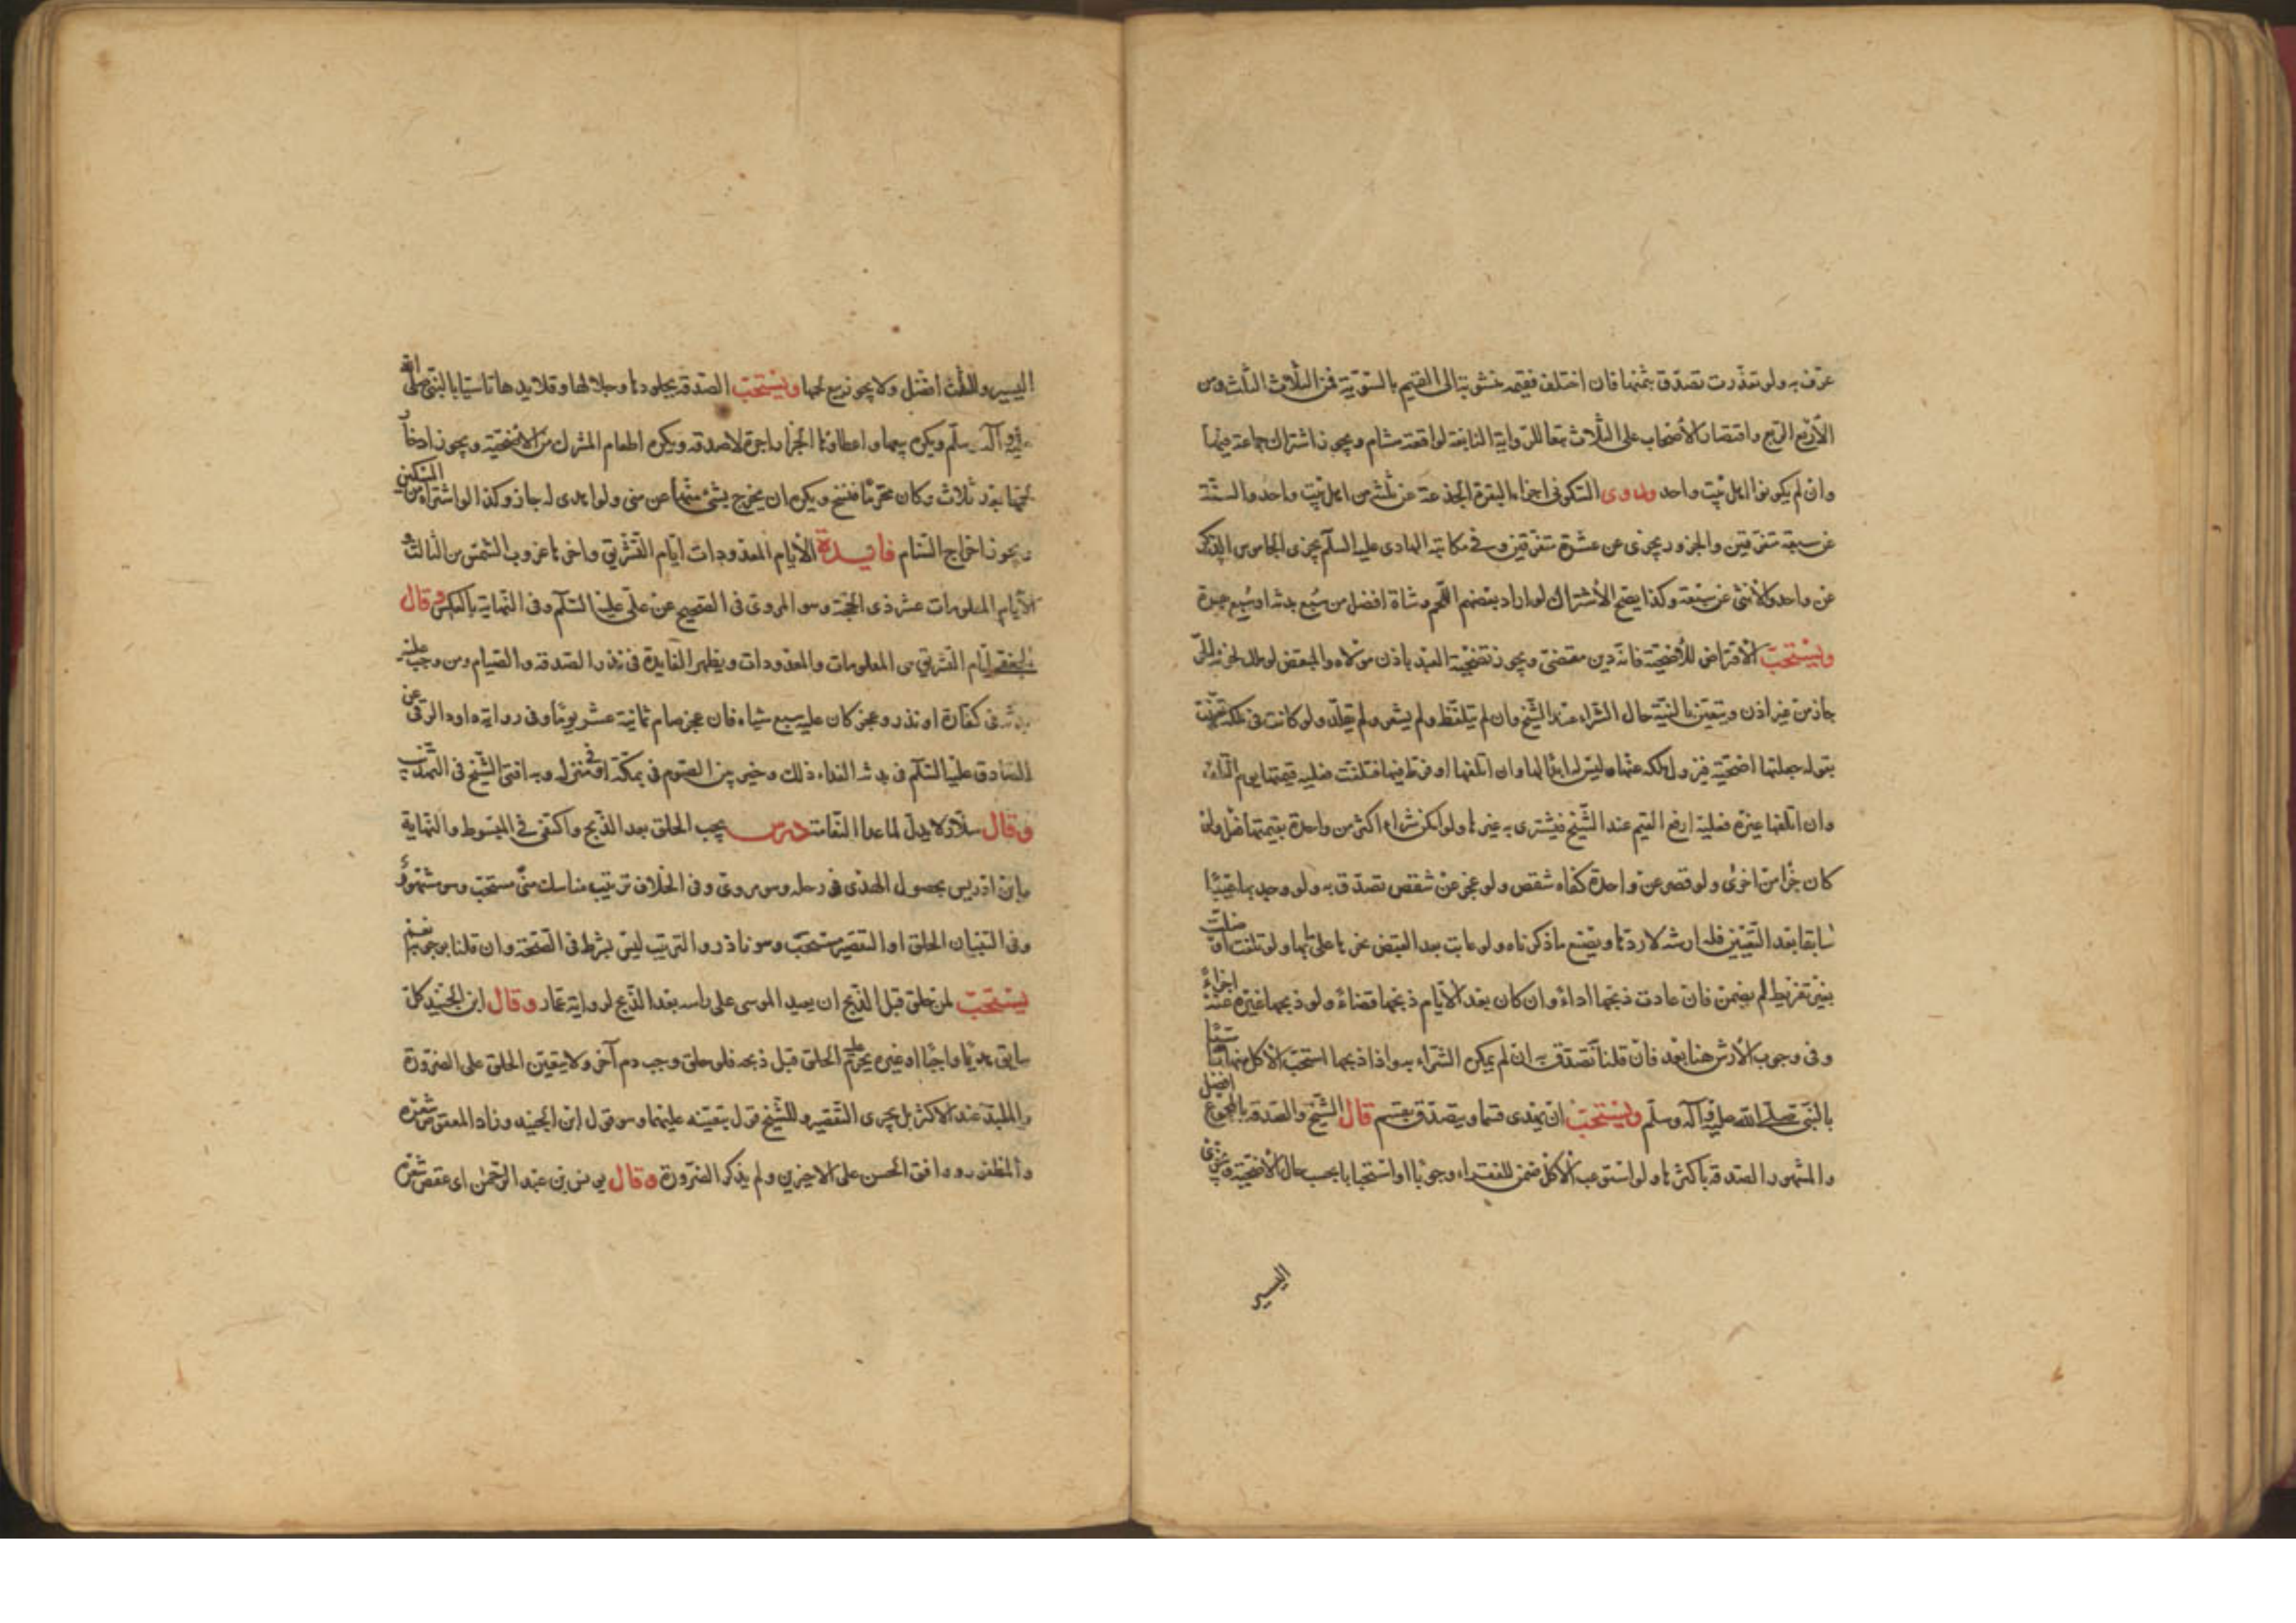 عرف به ولو تعذرت تصدق بثمنها فان اختلف فقيمة منسوبة الى القيم بالسوية فمن الثلاث الثلث ومن
الأربع الربع واقتصار الأصحاب على الثلاث تبعا للرواية التابعة لواقعة هشام ويجوز اشتراك جماعة فيها
وان لم يكونوا اهل بيت واحد وروى السكوني اجزاء البقرة الجذعة عن ثلثة من اهل بيت واحد والمسنة
عن سبعة متفرقين والجزور يجزى عن عشرة متفرقين وفي مكاتبة الهادى عليه السلم يجزى الجاموس الذكر
عن واحد والأنثى عن سبعة وكذا يصح الأشتراك لو اراد بعضهم اللحم وشاة افضل من سبع بدنة او سبع بقرة
ويستحب الأقتراض للأضحية فانه دين مقضى ويجوز تضحية العبد باذن مولاه والمبعض لو ملك بجزئه الحر
جاز من غير اذن ويتعين بالنية حال الشراء عند الشيخ وان لم يتلفظ ولم يشعر ولم يقلد ولو كانت في ملكه تعينت
بقوله جعلتها اضحية فيزول ملكه عنها وليس له ابدالها وان اتلفها او فرط فيها فتلفت فعليه قيمتها يوم التلف
وان اتلفها غيره فعليه ارفع القيم عند الشيخ فيشترى به غيرها ولو امكن شراء اكثر من واحدة بقيمتها فعل ولو
كان جزا من اخرى ولو قصر عن واحدة كفاه شقص ولو عجز عن شقص تصدق به ولو وجد بها عيبا
سابقا بعد التعيين فله ارشه لا ردها ويصنع ما ذكرناه ولو عابت بعد القبض نحرها على ما بها ولو تلفت او ضلت
بغير تفريط لم يضمن فان عادت ذبحها اداء وان كان بعد الأيام ذبحها قضاء ولو ذبحها غيره عنه اجزاء
وفى وجوب الأرش هنا بعد فان قلنا تصدق به ان لم يمكن الشراء به واذا ذبحها استحب الأكل منها تأسيا
بالنبى صلى الله عليه وآله وسلم ويستحب ان يهدى قسما ويتصدق بقسم قال الشيخ والصدقة بالجميع افضل
والمشهور الصدقة باكثرها ولو استوعب الأكل ضمن للفقراء وجوبا او استحبابا بحسب حال الأضحية ويجزى
اليسير
اليسير والثلث افضل ولا يجوز بيع لحمها ويستحب الصدقة بجلودها وجلالها وقلايدها تاسيا بالنبى صلى الله
عليه وآله وسلم ويكره بيعها واعطاؤها الجزار اجرة لا صدقة ويكره اطعام المشرك من الأضحية ويجوز ادخار
لحمها بعد ثلاث وكان محرما فنسخ ويكره ان يخرج بشىء منها عن منى ولو اهدى له جاز وكذا لو اشتراه من المسكين
ويجوز اخراج السنام فايدة الأيام المعدودات ايام التشريق واخرها غروب الشمس من الثالث و
الأيام المعلومات عشر ذى الحجة وهو المروى فى الصحيح عن على عليه السلم وفى النهاية بالعكس وقال
الجعفى ايام التشريق هى المعلومات والمعدودات ويظهر الفايدة فى نذر الصدقة والصيام ومن وجب عليه
بدنة فى كفارة او نذر وعجز كان عليه سبع شياه فان عجز صام ثمانية عشر يوما وفى رواية داود الرقى عن
الصادق عليه السلم فى بدنة الفداء ذلك وخير بين الصوم فى بمكة او فى منزله وبه افتى الشيخ فى التهذيب
وقال سلار ولا بدل لما عدا النعامة درس يجب الحلق بعد الذبح واكتفى فى المبسوط والنهاية
وابن ادريس بحصول الهدى فى رحله وهو مروى وفى الخلاف ترتيب مناسك منى مستحب وهو مشهور
وفى التبيان الحلق او التقصير مستحب وهو نادر والترتيب ليس بشرط فى الصحة وان قلنا بوجوبه نعم
يستحب لمن حلق قبل الذبح ان يعيد الموسى على راسه بعد الذبح لرواية عمار وقال ابن الجنيد كل
سايق هديا واجبا او غيره يحرم عليه الحلق قبل ذبحه فلو حلق وجب دم آخر ولا يتعين الحلق على الصرورة
والملبد عند الاكثر بل يجزى التقصير وللشيخ قول بتعينه عليهما وهو قول ابن الجنيد وزاد المعقوص شعره
والمظفور ووافق الحسن على الاخيرين ولم يذكر الصرورة وقال يونس بن عبد الرحمن اى عقص شعره